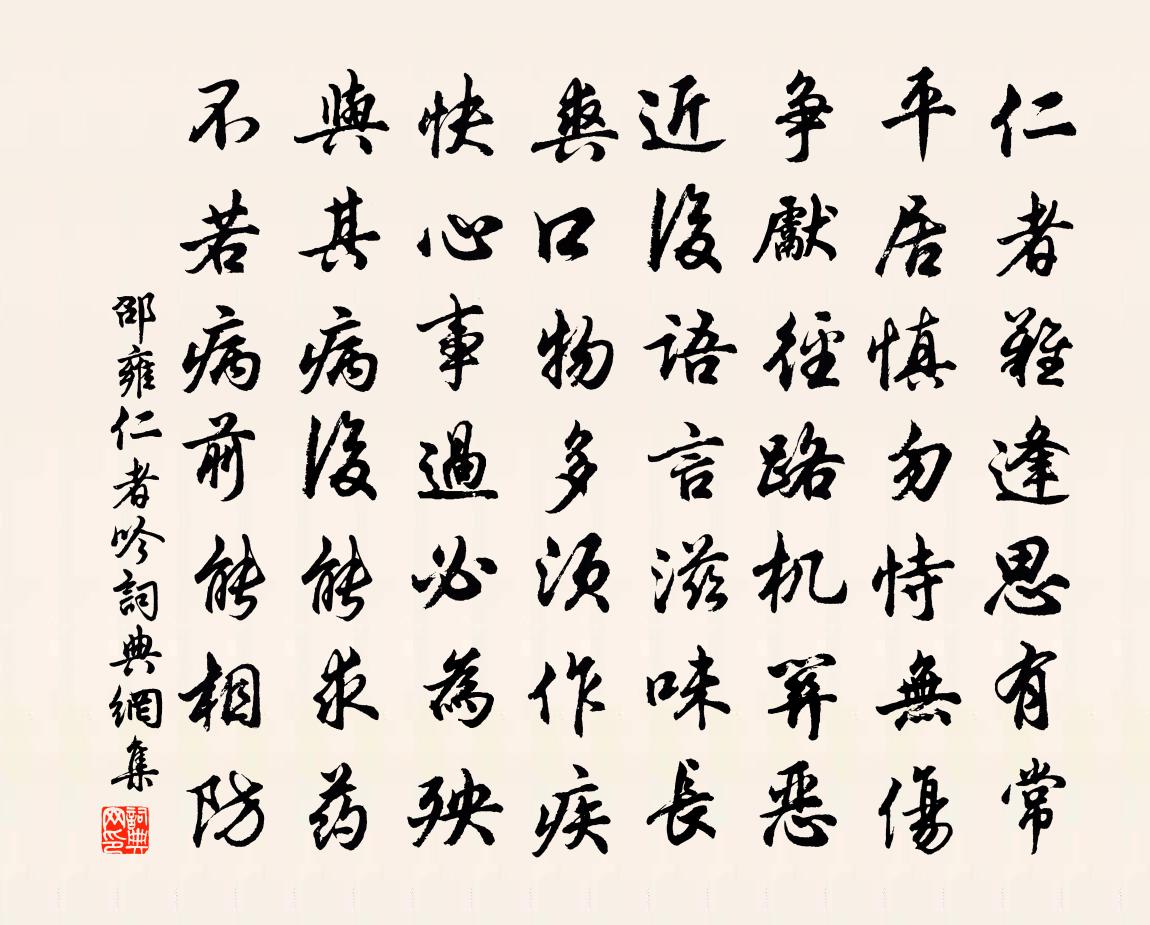 仁者難逢思有常
平居慎勿恃無傷
争獻徑路机關惡
近後語言滋味長
爽口物多須作疾
快心事過必為殃
與其病後能求药
不若病前能相防
邵雍仁者吟詞典網集
詞典网印